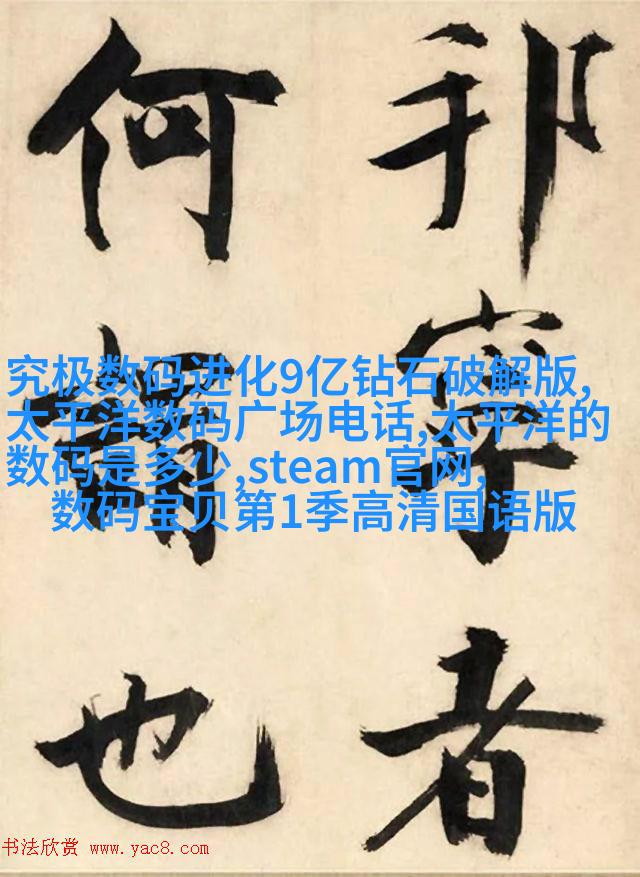 邦寧者
何謂也
究极数码进化9亿钻石破解版,
太平洋数码广场电话,太平洋的
数码是多少,steam官网,
数码宝贝第1季高清国语版
书法欣赏 www.yac8.com